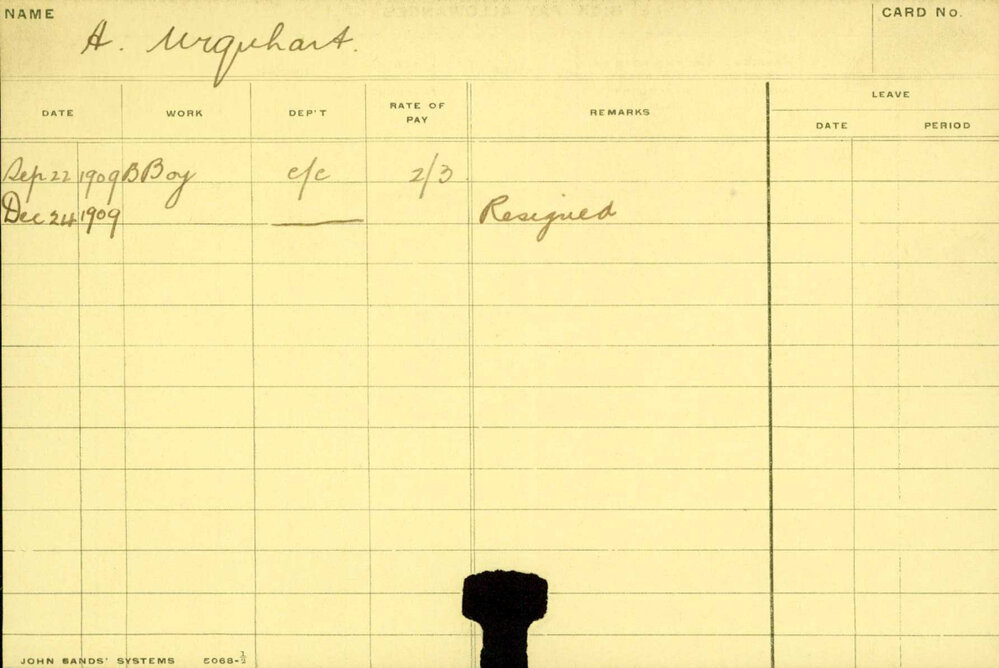 NAME A. Urquhart. CARD No.
LEAVE
DATE WORK DEP'T RATE OF PAY REMARKS DATE PERIOD
Sep 22 1909 B Boy c/c 2/3
Dec 24 1909 Resigned
JOHN SANDS' SYSTEMS 5068-½